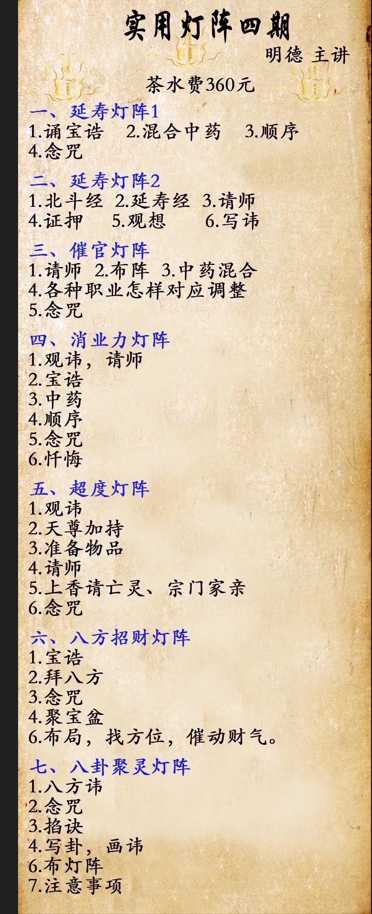 实用灯阵四期
明德 主讲
茶水费360元
一、延寿灯阵1
1.诵宝诰 2.混合中药 3.顺序
4.念咒
二、延寿灯阵2
1.北斗经 2.延寿经 3.请师
4.证押 5.观想 6.写讳
三、催官灯阵
1.请师 2.布阵 3.中药混合
4.各种职业怎样对应调整
5.念咒
四、消业力灯阵
1.观讳，请师
2.宝诰
3.中药
4.顺序
5.念咒
6.忏悔
五、超度灯阵
1.观讳
2.天尊加持
3.准备物品
4.请师
5.上香请亡灵、宗门家亲
6.念咒
六、八方招财灯阵
1.宝诰
2.拜八方
3.念咒
4.聚宝盆
6.布局，找方位，催动财气。
七、八卦聚灵灯阵
1.八方讳
2.念咒
3.掐诀
4.写卦，画讳
6.布灯阵
7.注意事项